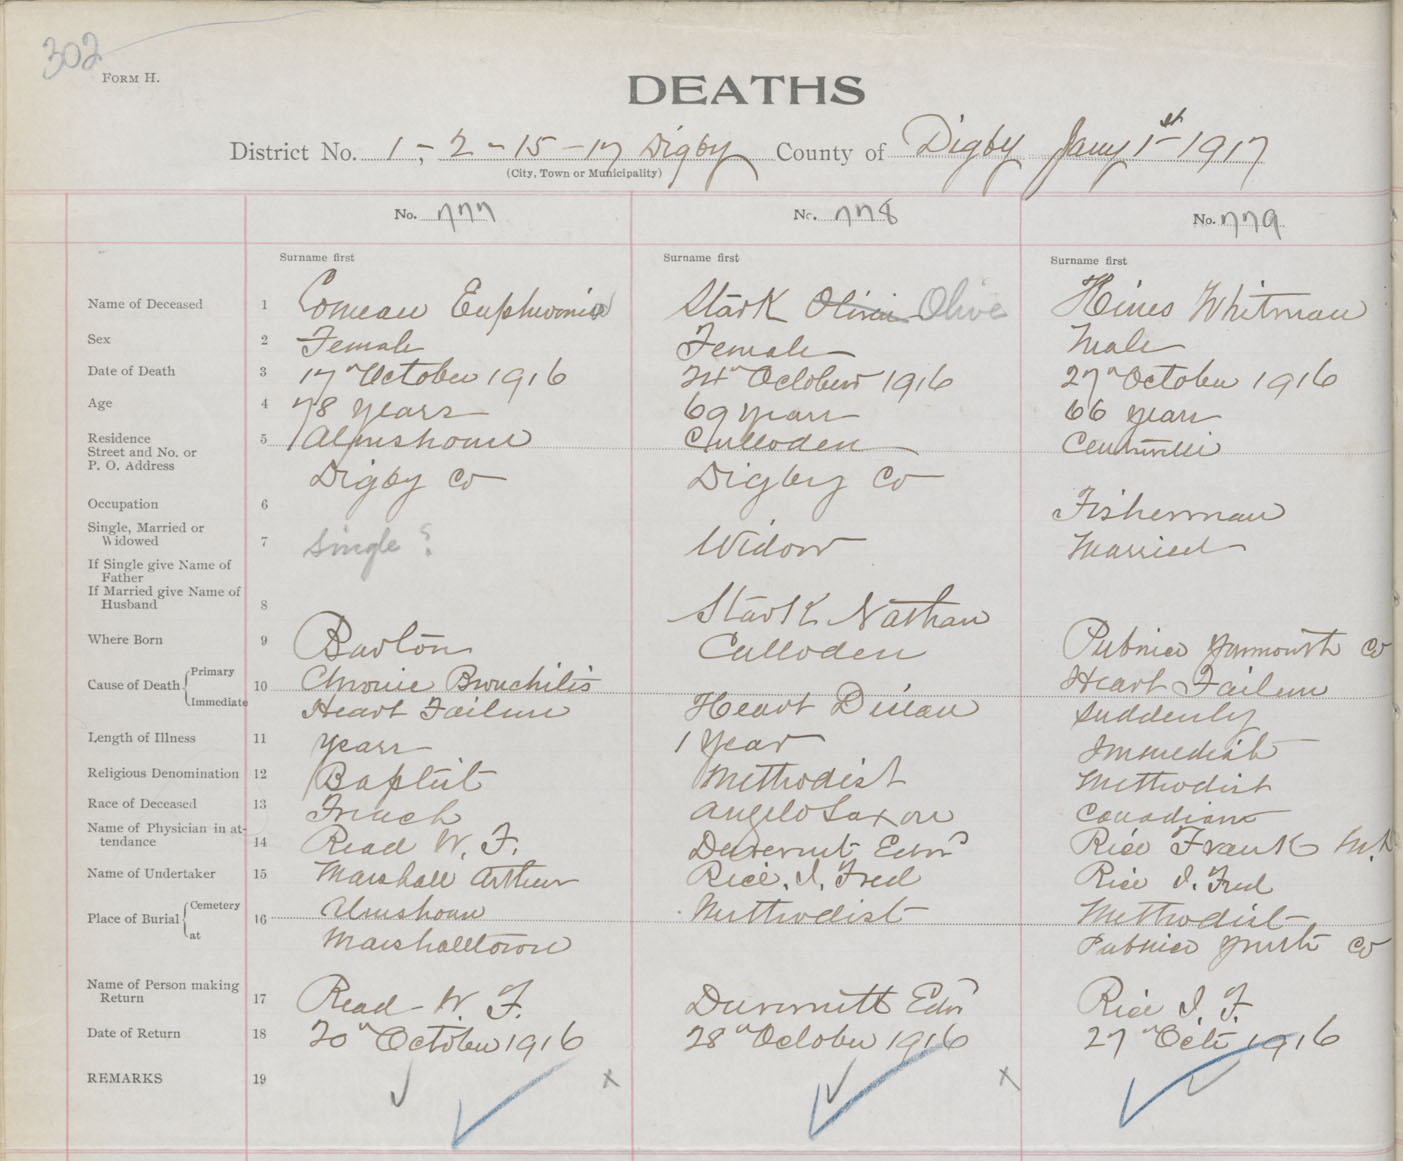 302
FORM H.
DEATHS
District No. 1-2-15-17 Digby County of Digby Jany 1st 1917
(City, Town or Municipality)
No. 777 No. 778 No. 779
Surname first Surname first Surname first
Name of Deceased 1 Comeau Euphemia Stark Olivia Olive Hines Whitman
Sex 2 Female Female Male
Date of Death 3 17th October 1916 24th October 1916 27th October 1916
Age 4 78 years 69 years 66 years
Residence 5 Almshouse Culloden Centreville
Street and No. or
P. O. Address Digby Co Digby Co
Occupation 6 Fisherman
Single, Married or
Widowed 7 Single ? Widow Married
If Single give Name of
Father
If Married give Name of
Husband 8 Stark Nathan
Where Born 9 Barton Culloden Pubnico Yarmouth Co
Cause of Death Primary 10 Chronic Bronchitis Heart Failure
Immediate Heart Failure Heart Disease Suddenly
Length of Illness 11 years 1 year Immediate
Religious Denomination 12 Baptist Methodist Methodist
Race of Deceased 13 French Anglo Saxon Canadian
Name of Physician in at-
tendance 14 Read W. F. Duvernet Edwd Rice Frank M.D
Name of Undertaker 15 Marshall Arthur Rice. I. Fred Rice I. Fred
Place of Burial Cemetery 16 Almshouse Methodist Methodist
at Marshalltown Pubnico Yrmth Co
Name of Person making
Return 17 Read - W. F. Duvernett Edwd Rice I. F.
Date of Return 18 20th October 1916 28th October 1916 27th Oct 1916
REMARKS 19 x x